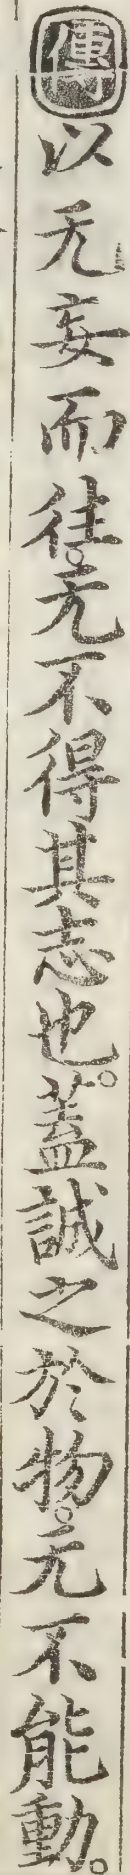 傳以无妄而往。无不得其志也。蓋誠之於物。无不能動。